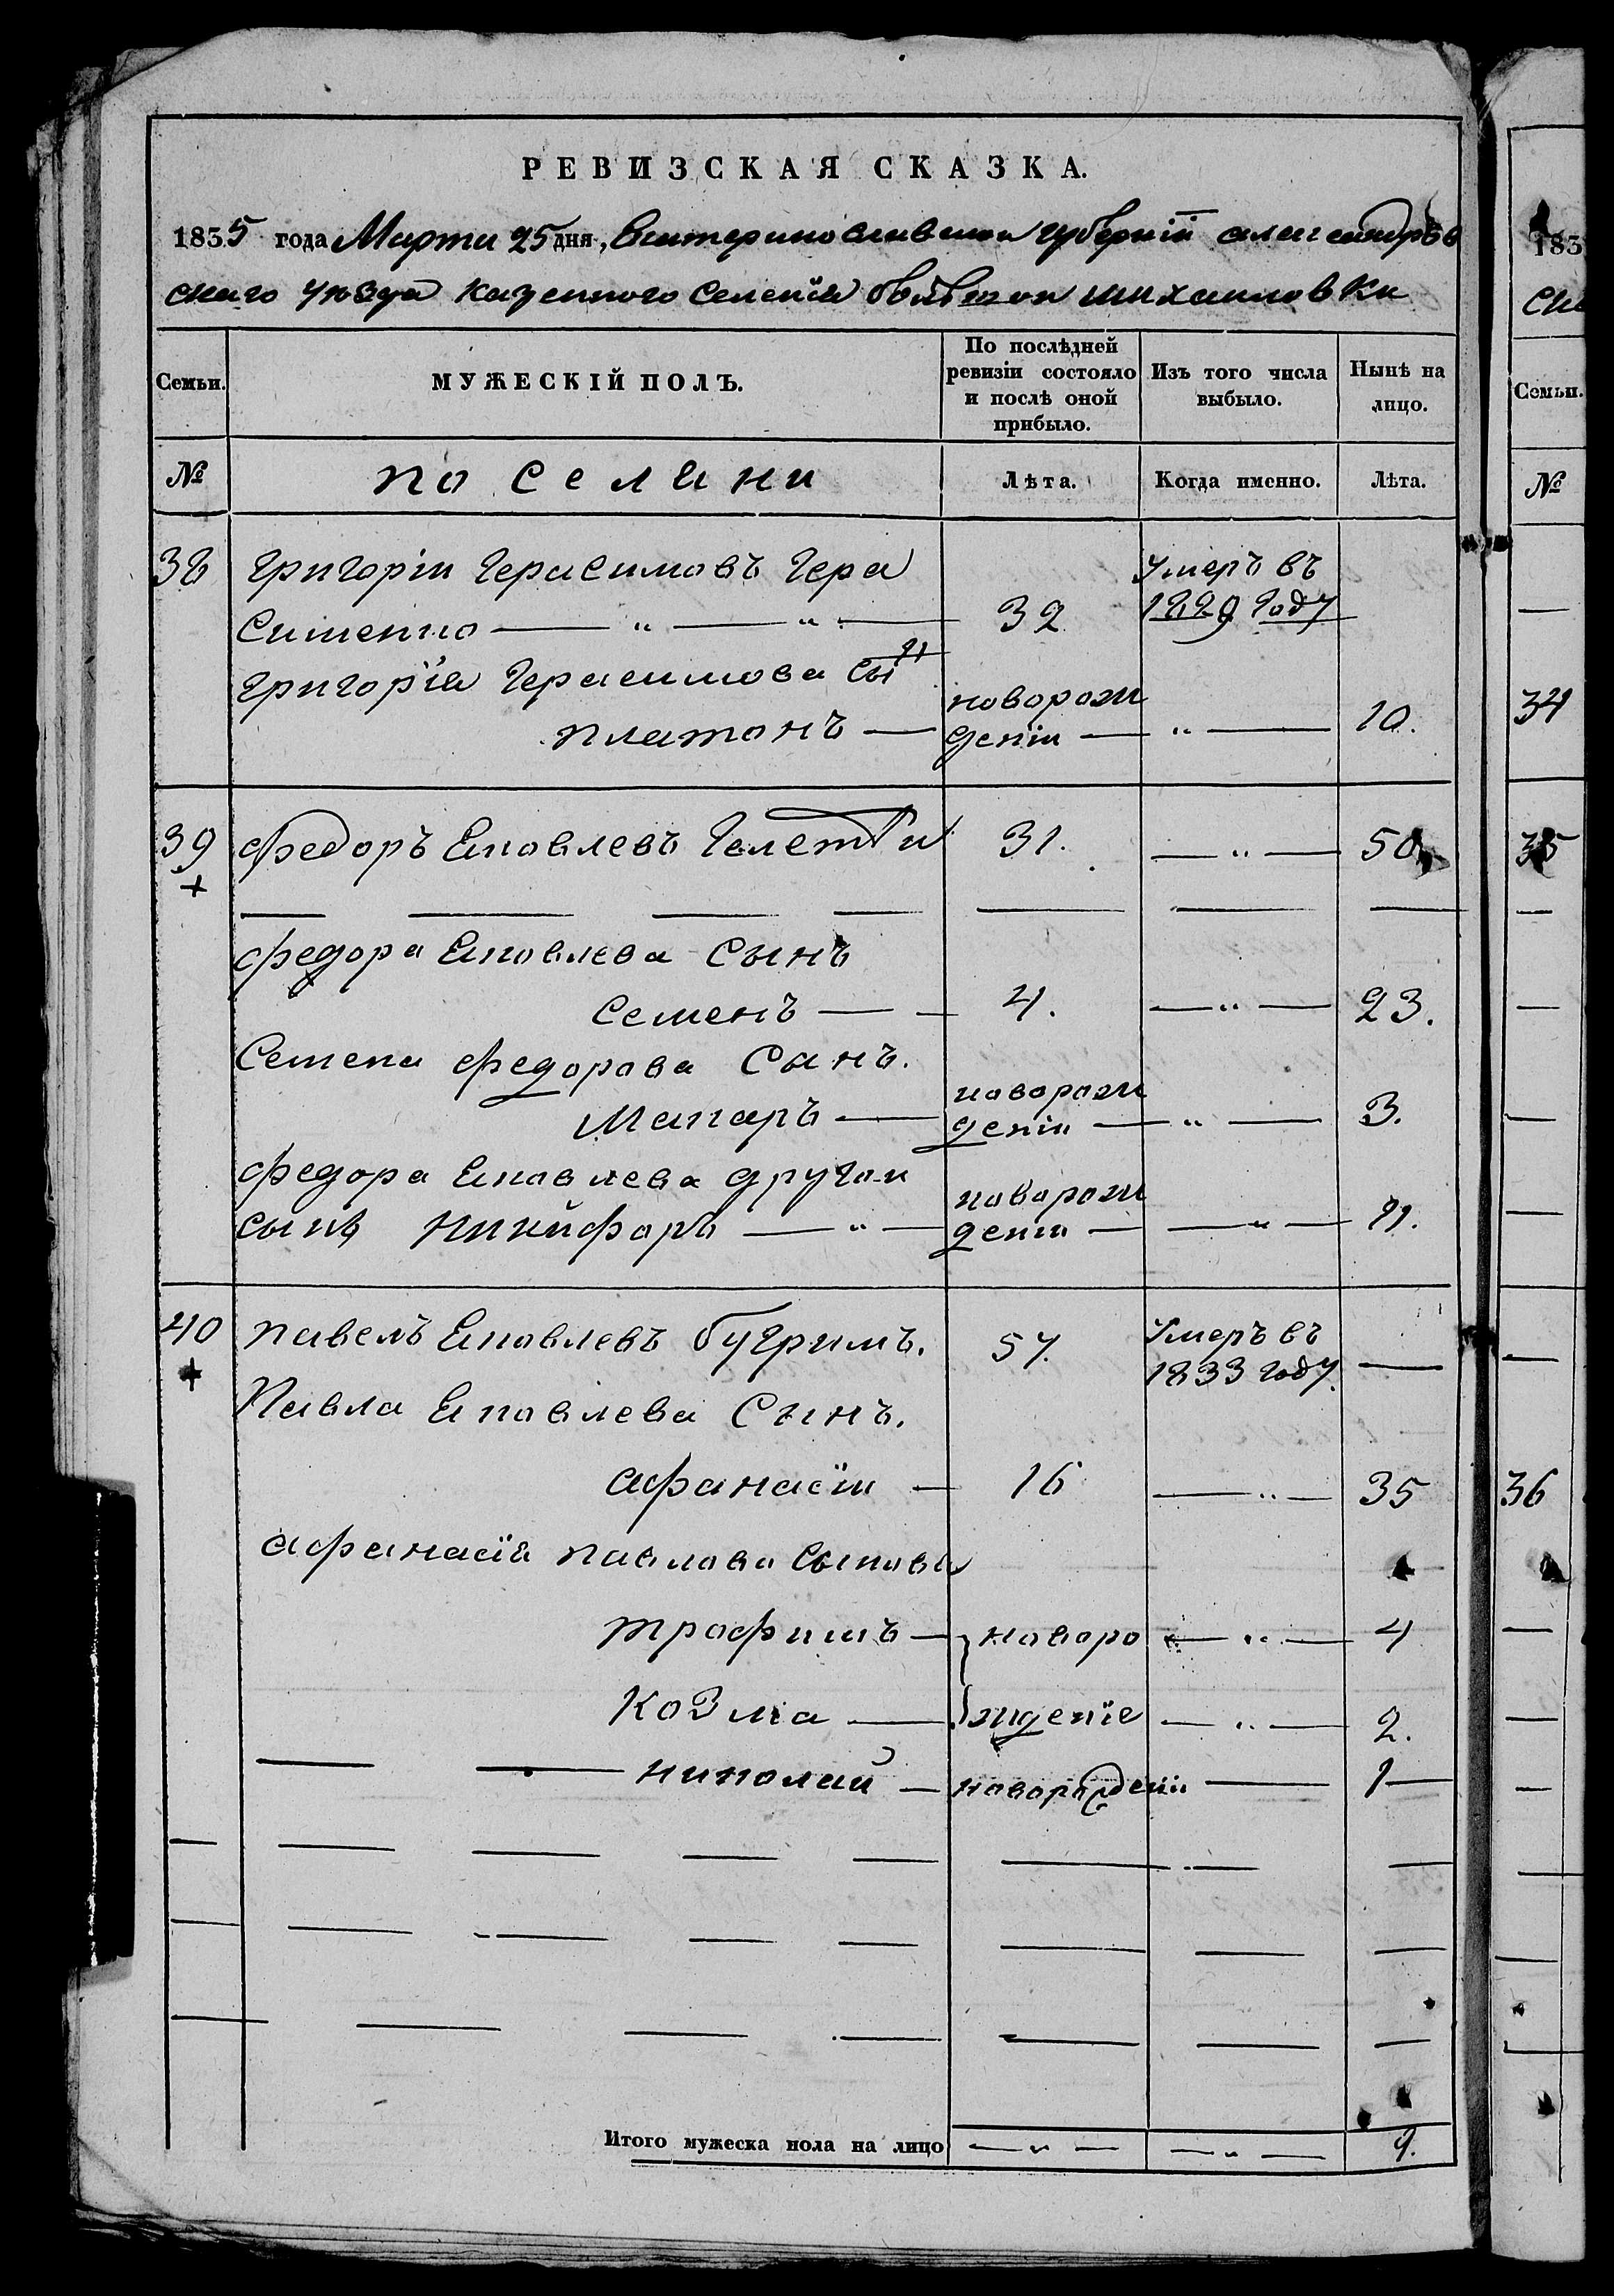 РЕВИЗСКАЯ СКАЗКА.
1835 года Марта 25 дня, Екатеринославской губерніи александров
скаго уезда казенного Селенія михаиловки
Семьи. МУЖЕСКІЙ ПОЛЪ. По послѣдней ревизіи состояло и послѣ оной прибыло. Изъ того числа выбыло. Нынѣ на лицо.
№ поселяни Лѣта. Когда именно. Лѣта.
38 григоріи Герасимовъ Гера
сименко 32 Умеръ въ 1829 году
григорія Герасимова сын
платонъ новорож деніи 10.
39 федоръ Яковлевъ 31. 50
федора Яковлева Сынъ
Семенъ 4. 23.
Семена федорова Сынъ.
Макаръ новорож деніи 3.
федора Яковлева другои
сынъ никифоръ новорож деніи 11.
40 павелъ Яковлевъ бугримъ. 57. Умеръ въ 1833 году.
Павла Яковлева Сынъ.
афанасіи 16 35
афанасія павлова Сынова
трофимъ новоро 4
Козма жденіе 2.
николай новорождени 1
Итого мужеска пола на лицо 9.
183
Семьи.
№
34
35
36